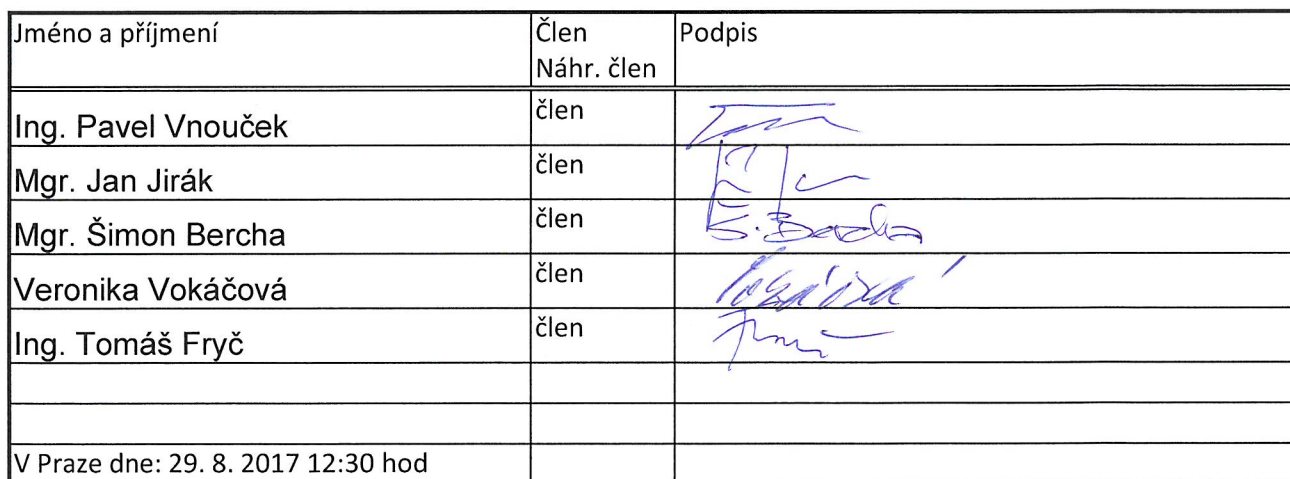 Jméno a příjmení
Člen
Náhr. člen
Podpis
Ing. Pavel Vnouček
člen
Mgr. Jan Jirák
člen
Mgr. Šimon Bercha
člen
Š. Bercha
Veronika Vokáčová
člen
Vokáčová
Ing. Tomáš Fryč
člen
V Praze dne: 29. 8. 2017 12:30 hod